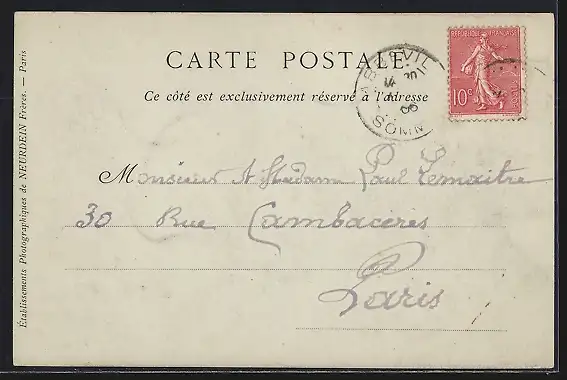 RÉPUBLIQUE FRANÇAISE
10c
POSTES
CARTE POSTALE
ABBEVIL
SOMM
Ce côté est exclusivement réservé à l'adresse
Monsieur et Madame Paul Lemaitre
30 Rue Cambacérès
Paris
Établissements Photographiques de NEURDEIN Frères. — Paris